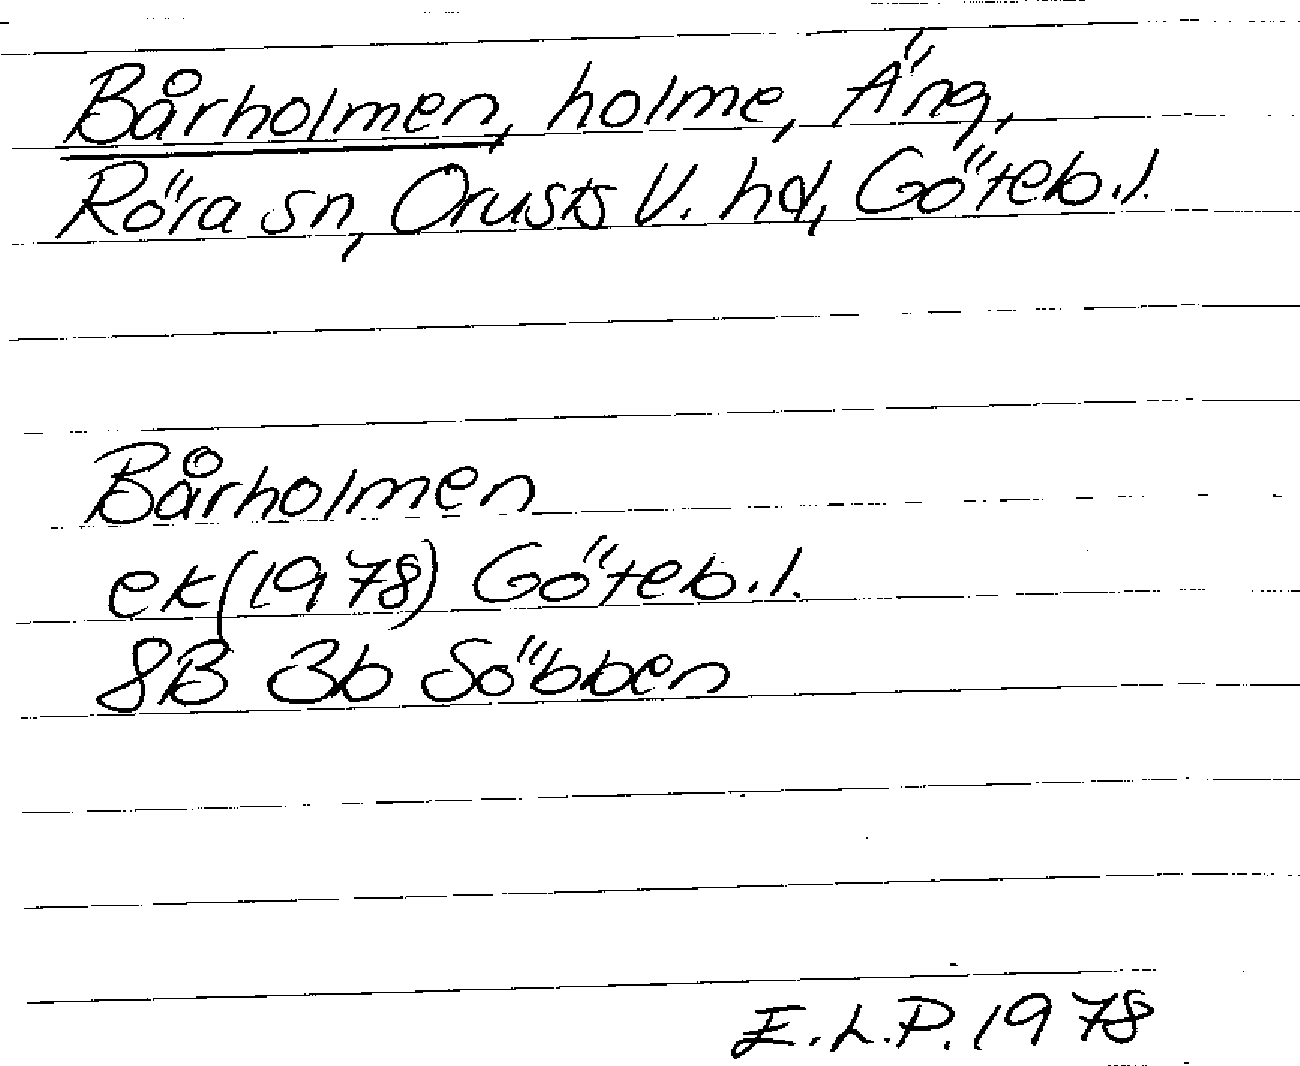 Bårholmen, holme, Äng,
Röra sn, Orusts V. hd, Göteb.l.
Bårholmen
ek(1978) Göteb.l.
8B 3b Söbben
E.L.P. 1978